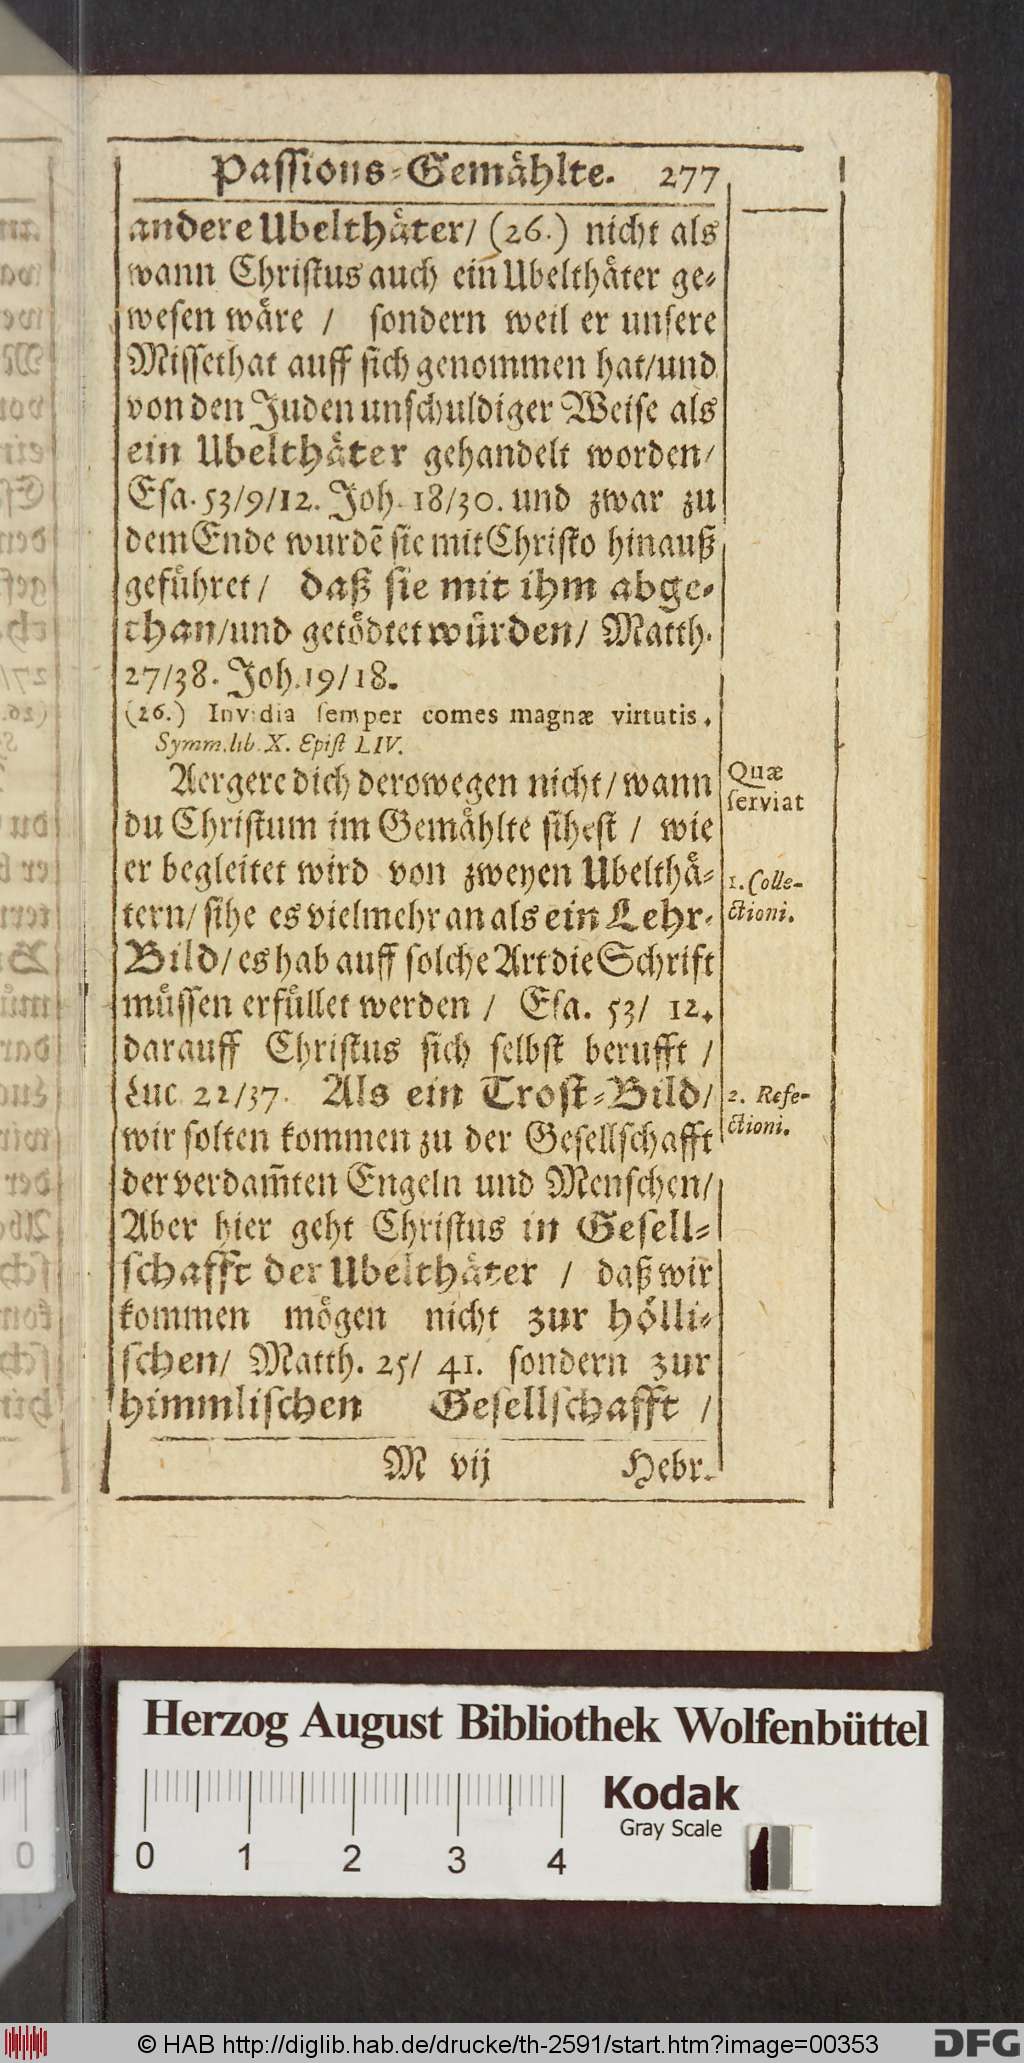 Passions-Gemählte. 277
andere Ubelthäter/ (26.) nicht als
wann Christus auch ein Ubelthäter ge-
wesen wäre / sondern weil er unsere
Missethat auff sich genommen hat/und
von den Juden unschuldiger Weise als
ein Ubelthäter gehandelt worden/
Esa. 53/9/12. Joh. 18/30. und zwar zu
dem Ende wurdē sie mit Christo hinauß
geführet / daß sie mit ihm abge-
than/und getödtet würden/ Matth.
27/38. Joh. 19/18.
(26.) Invidia semper comes magnæ virtutis.
Symm. lib. X. Epist LIV.
Aergere dich derowegen nicht/ wann
du Christum im Gemählte sihest / wie
er begleitet wird von zweyen Ubelthä-
tern/ sihe es vielmehr an als ein Lehr-
Bild/ es hab auff solche Art die Schrift
müssen erfüllet werden / Esa. 53/ 12.
darauff Christus sich selbst berufft /
Luc 22/37. Als ein Trost-Bild/
wir solten kommen zu der Gesellschafft
der verdam̄ten Engeln und Menschen/
Aber hier geht Christus in Gesell-
schafft der Ubelthäter / daß wir
kommen mögen nicht zur hölli-
schen/ Matth. 25/ 41. sondern zur
himmlischen Gesellschafft /
M vij Hebr.
Quæ
serviat
1. Colle-
ctioni.
2. Refe-
ctioni.
Herzog August Bibliothek Wolfenbüttel
Kodak
Gray Scale
0 1 2 3 4
© HAB http://diglib.hab.de/drucke/th-2591/start.htm?image=00353
DFG